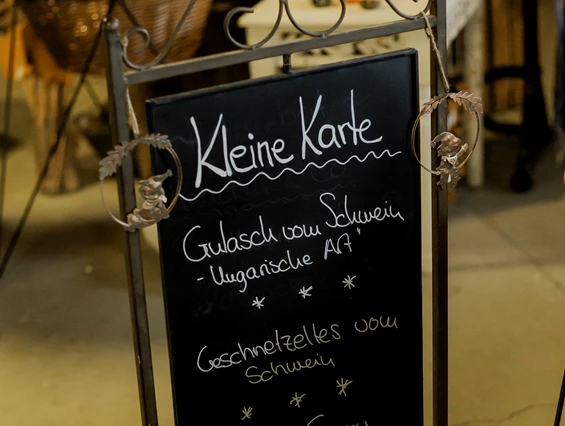 Kleine Karte
Gulasch vom Schwein
- Ungarische Art"
* * *
Geschnetzeltes vom
Schwein
* * *